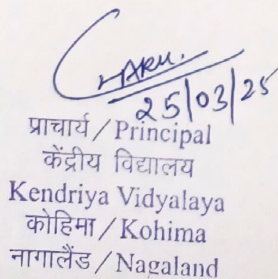 CHARU.
25/03/25
प्राचार्य / Principal
केंद्रीय विद्यालय
Kendriya Vidyalaya
कोहिमा / Kohima
नागालैंड / Nagaland